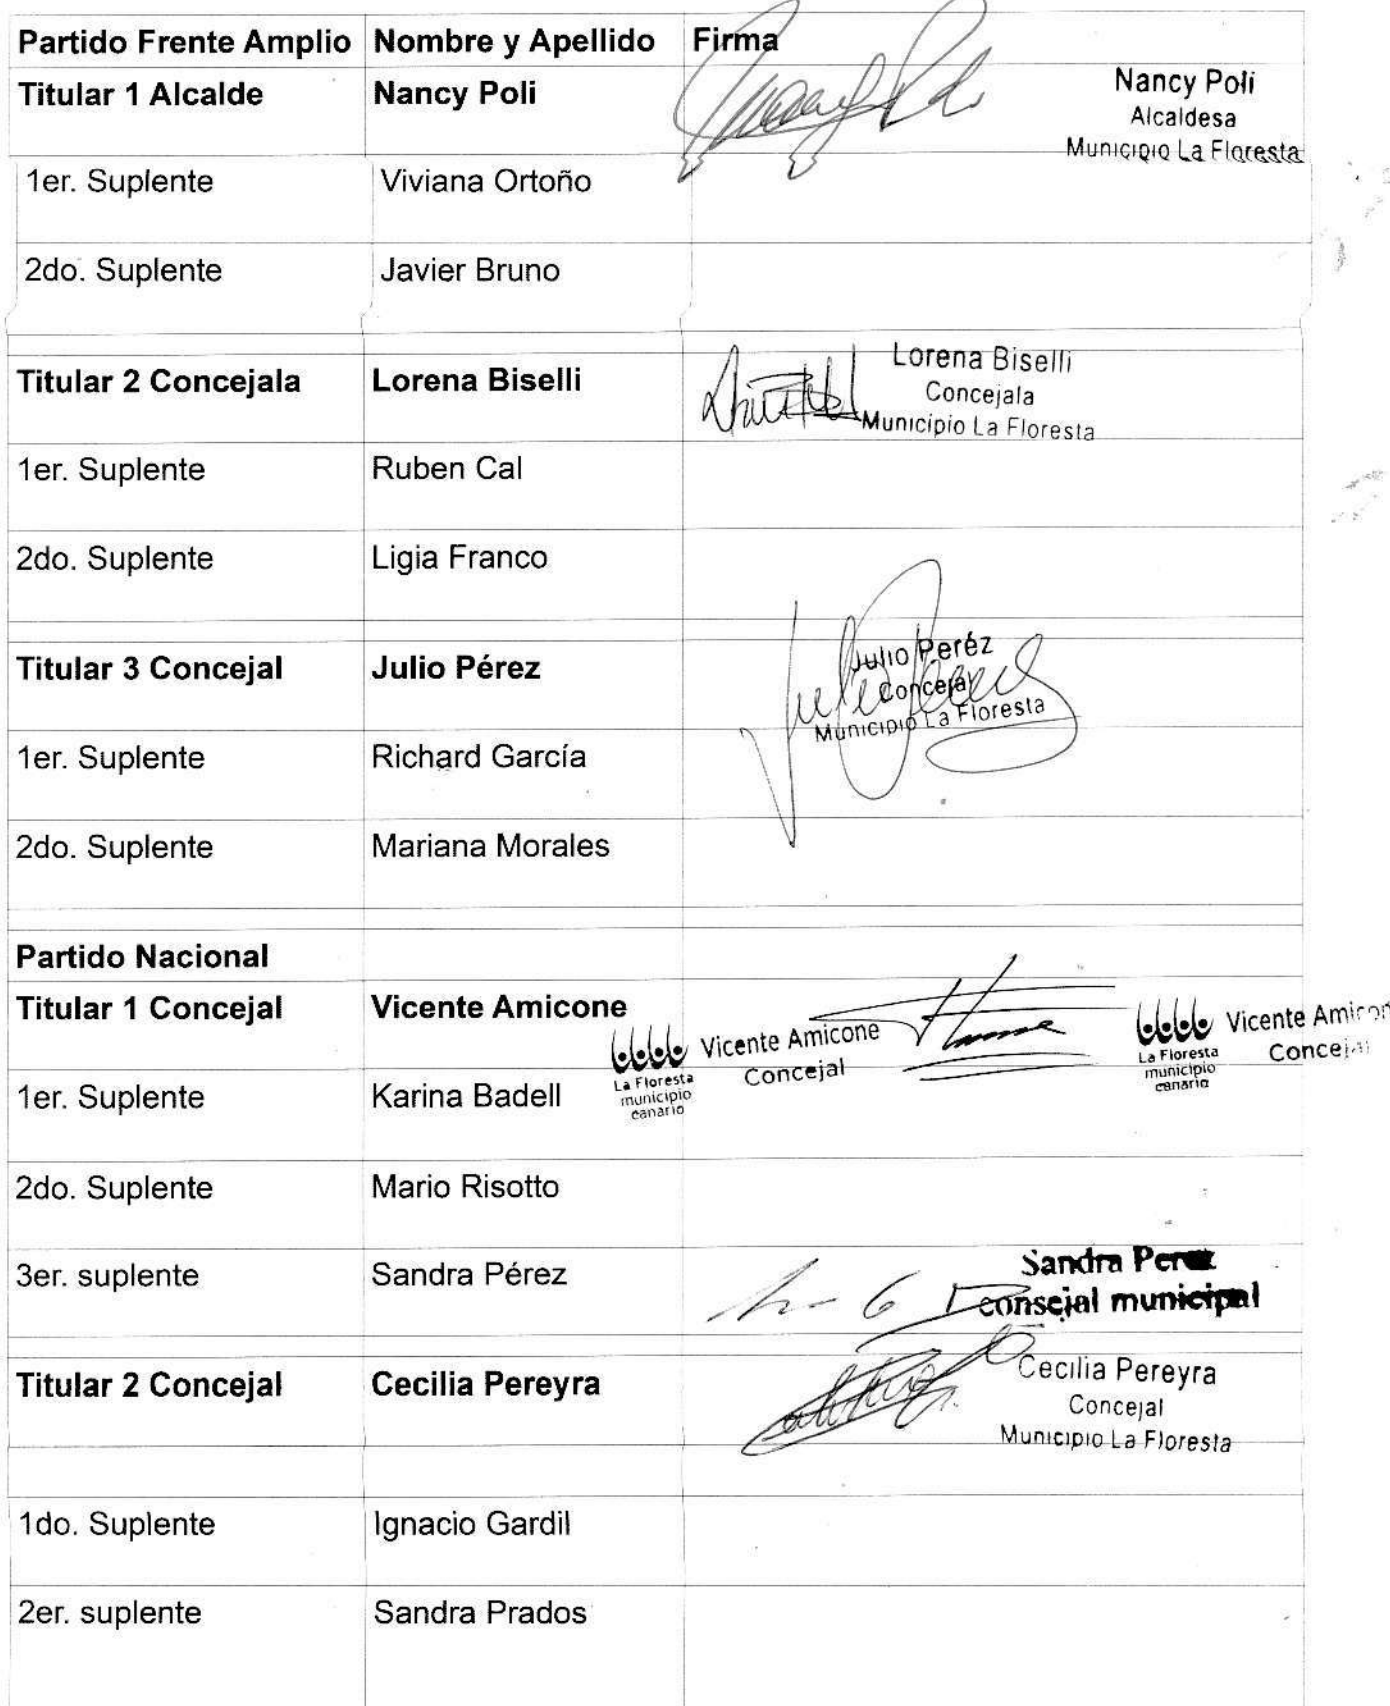 Partido Frente Amplio Nombre y Apellido Firma
Titular 1 Alcalde Nancy Poli
Nancy Poli
Alcaldesa
Municipio La Floresta
1er. Suplente Viviana Ortoño
2do. Suplente Javier Bruno
Titular 2 Concejala Lorena Biselli
Lorena Biselli
Concejala
Municipio La Floresta
1er. Suplente Ruben Cal
2do. Suplente Ligia Franco
Titular 3 Concejal Julio Pérez
Julio Peréz
Concejal
Municipio La Floresta
1er. Suplente Richard García
2do. Suplente Mariana Morales
Partido Nacional
Titular 1 Concejal Vicente Amicone
Vicente Amicone
Concejal
La Floresta
municipio
canario
Vicente Amicon
Concejal
La Floresta
municipio
canario
1er. Suplente Karina Badell
2do. Suplente Mario Risotto
3er. suplente Sandra Pérez
Sandra Perez
consejal municipal
Titular 2 Concejal Cecilia Pereyra
Cecilia Pereyra
Concejal
Municipio La Floresta
1do. Suplente Ignacio Gardil
2er. suplente Sandra Prados